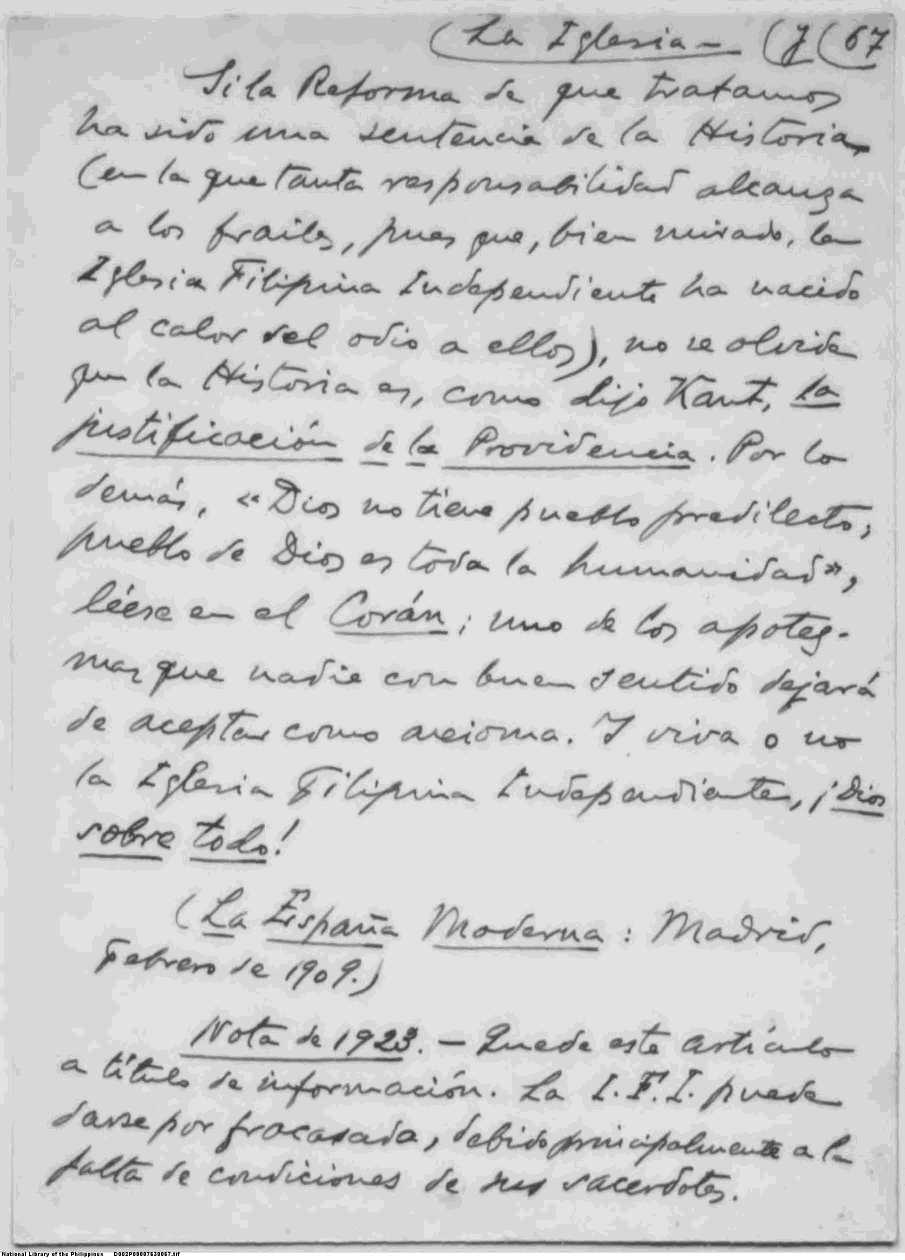 (La Iglesia— (J (67
Si la Reforma de que tratamos
ha sido una sentencia de la Historia,
(en la que tanta responsabilidad alcanza
a los frailes, pues que, bien mirado, la
Iglesia Filipina Independiente ha nacido
al calor del odio a ellos), no se olvide
que la Historia es, como dijo Kant, la
justificación de la Providencia. Por lo
demás, «Dios no tiene pueblo predilecto;
pueblo de Dios es toda la humanidad»,
léese en el Corán; uno de los apoteg-
mas que nadie con buen sentido dejará
de aceptar como axioma. Y viva o no
la Iglesia Filipina Independiente, ¡Dios
sobre todo!
(La España Moderna: Madrid,
Febrero de 1909.)
Nota de 1923.— Quede este artículo
a título de información. La I.F.I. puede
darse por fracasada, debido principalmente a la
falta de condiciones de sus sacerdotes.
National Library of the Philippines D002P00007639067.tif